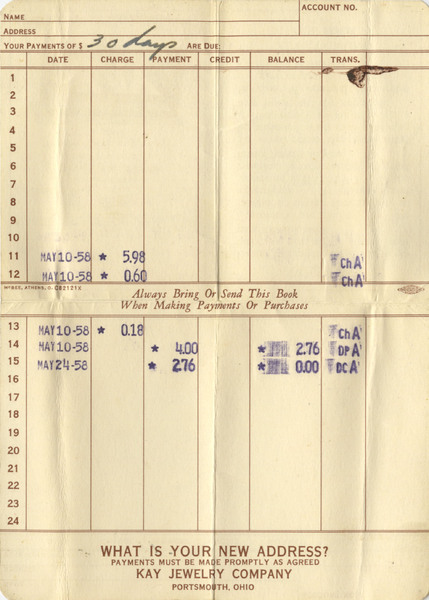 NAME
ACCOUNT NO.
ADDRESS
YOUR PAYMENTS OF $ 30 days ARE DUE:
DATE CHARGE PAYMENT CREDIT BALANCE TRANS.
1
2
3
4
5
6
7
8
9
10
11 MAY10-58 * 5.98 ChA
12 MAY10-58 * 0.60 ChA
MCBEE, ATHENS, O. CB2121X
Always Bring Or Send This Book
When Making Payments Or Purchases
13 MAY10-58 * 0.18 ChA
14 MAY10-58 * 4.00 * 2.76 DPA
15 MAY24-58 * 2.76 * 0.00 DCA
16
17
18
19
20
21
22
23
24
WHAT IS YOUR NEW ADDRESS?
PAYMENTS MUST BE MADE PROMPTLY AS AGREED
KAY JEWELRY COMPANY
PORTSMOUTH, OHIO